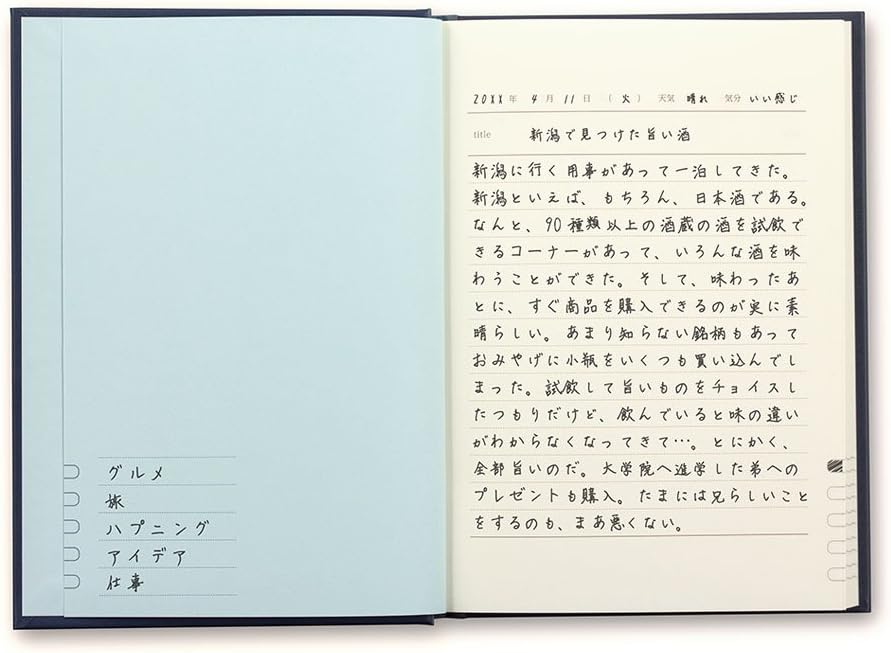 グルメ
旅
ハプニング
アイデア
仕事
20XX年 4月 11日 (火) 天気 晴れ 気分 いい感じ
title 新潟で見つけた旨い酒
新潟に行く用事があって一泊してきた。
新潟といえば、もちろん、日本酒である。
なんと、90種類以上の酒蔵の酒を試飲で
きるコーナーがあって、いろんな酒を味
わうことができた。そして、味わったあ
とに、すぐ商品を購入できるのが実に素
晴らしい。あまり知らない銘柄もあって
おみやげに小瓶をいくつも買い込んでし
まった。試飲して旨いものをチョイスし
たつもりだけど、飲んでいると味の違い
がわからなくなってきて…。とにかく、
全部旨いのだ。大学院へ進学した弟への
プレゼントも購入。たまには兄らしいこと
をするのも、まあ悪くない。